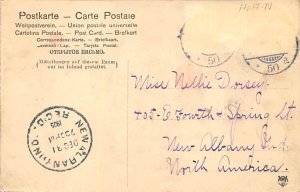 Postkarte — Carte Postale
Weltpostverein. — Union postale universelle
Cartolina Postale. — Post Card. — Brefkort
Correspondenz-Karte. — Briefkaart.
Levelező-Lap. — Tarjeta Postal.
ОТКРЫТОЕ ПИСЬМО.
Mitteilungen auf diesem Raum
nur im Inland gestattet.
50
50
Miss Nellie Dorsey
405-E. Fourth & Spring St
New Albany Ind
North America.
NEW ALBANY IND.
DEC 31
REC'D.